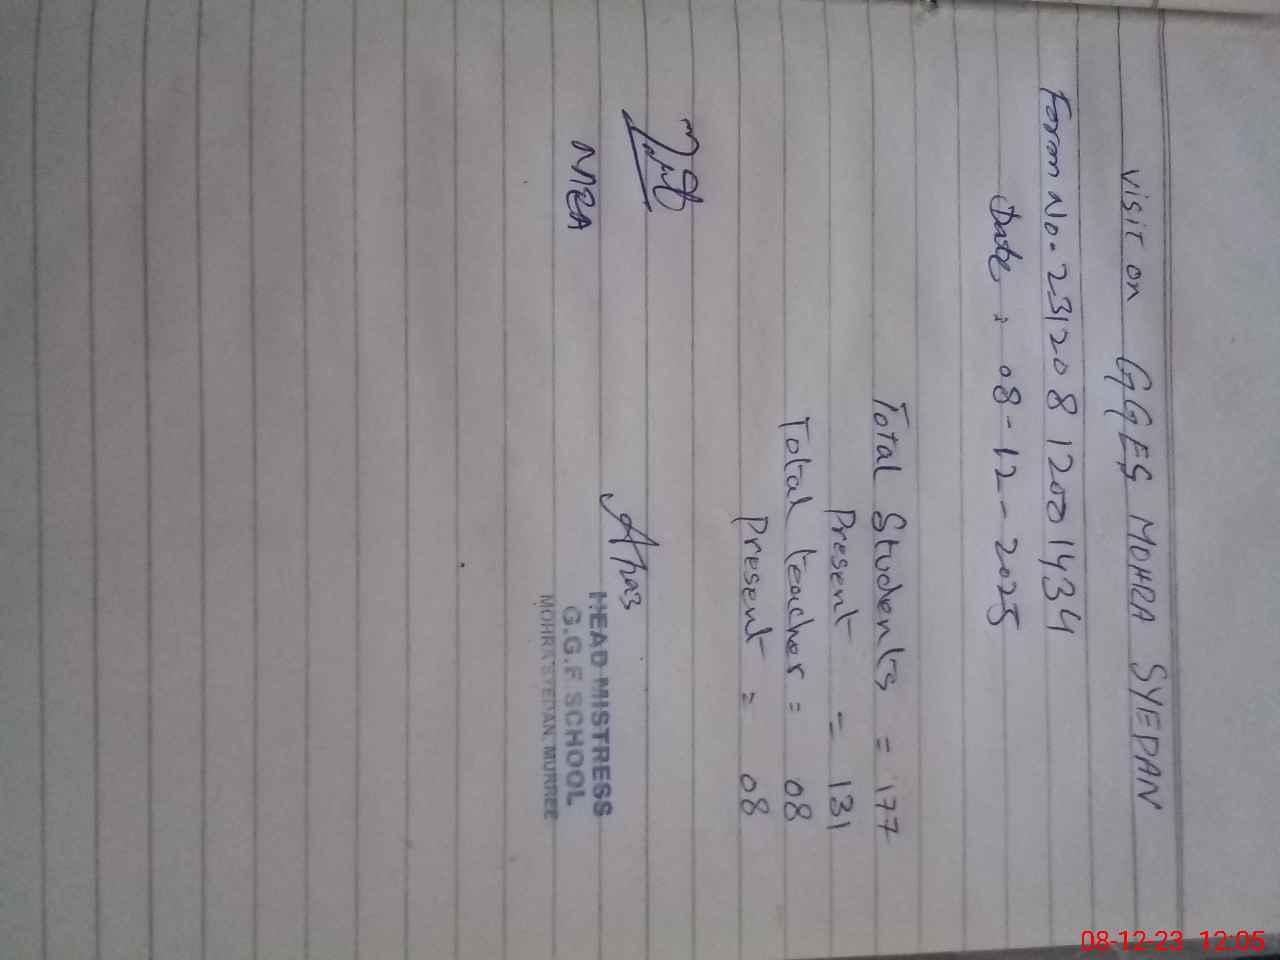 visit on GGES MOHRA SYEDAN
Form No. 23120812001434
Date : 08-12-2025
Total Students = 177
Present = 131
Total teacher = 08
Present = 08
MEA
HEAD MISTRESS
G.G.E SCHOOL
MOHRA SYEDAN, MURREE
08-12-23 12:05